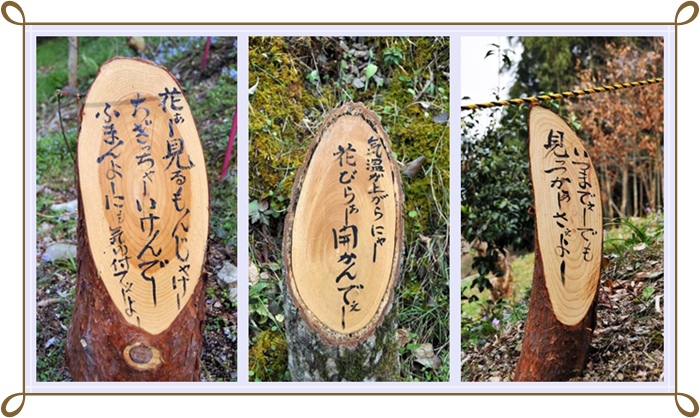 花ぁー見るもんじゃけー
ちぎっちゃーいけんでー
ふまんよーにも
気温が上がらにゃー
花びらぁ開かんでぇー
いつまでぇーでも
見つかぁさぇよー